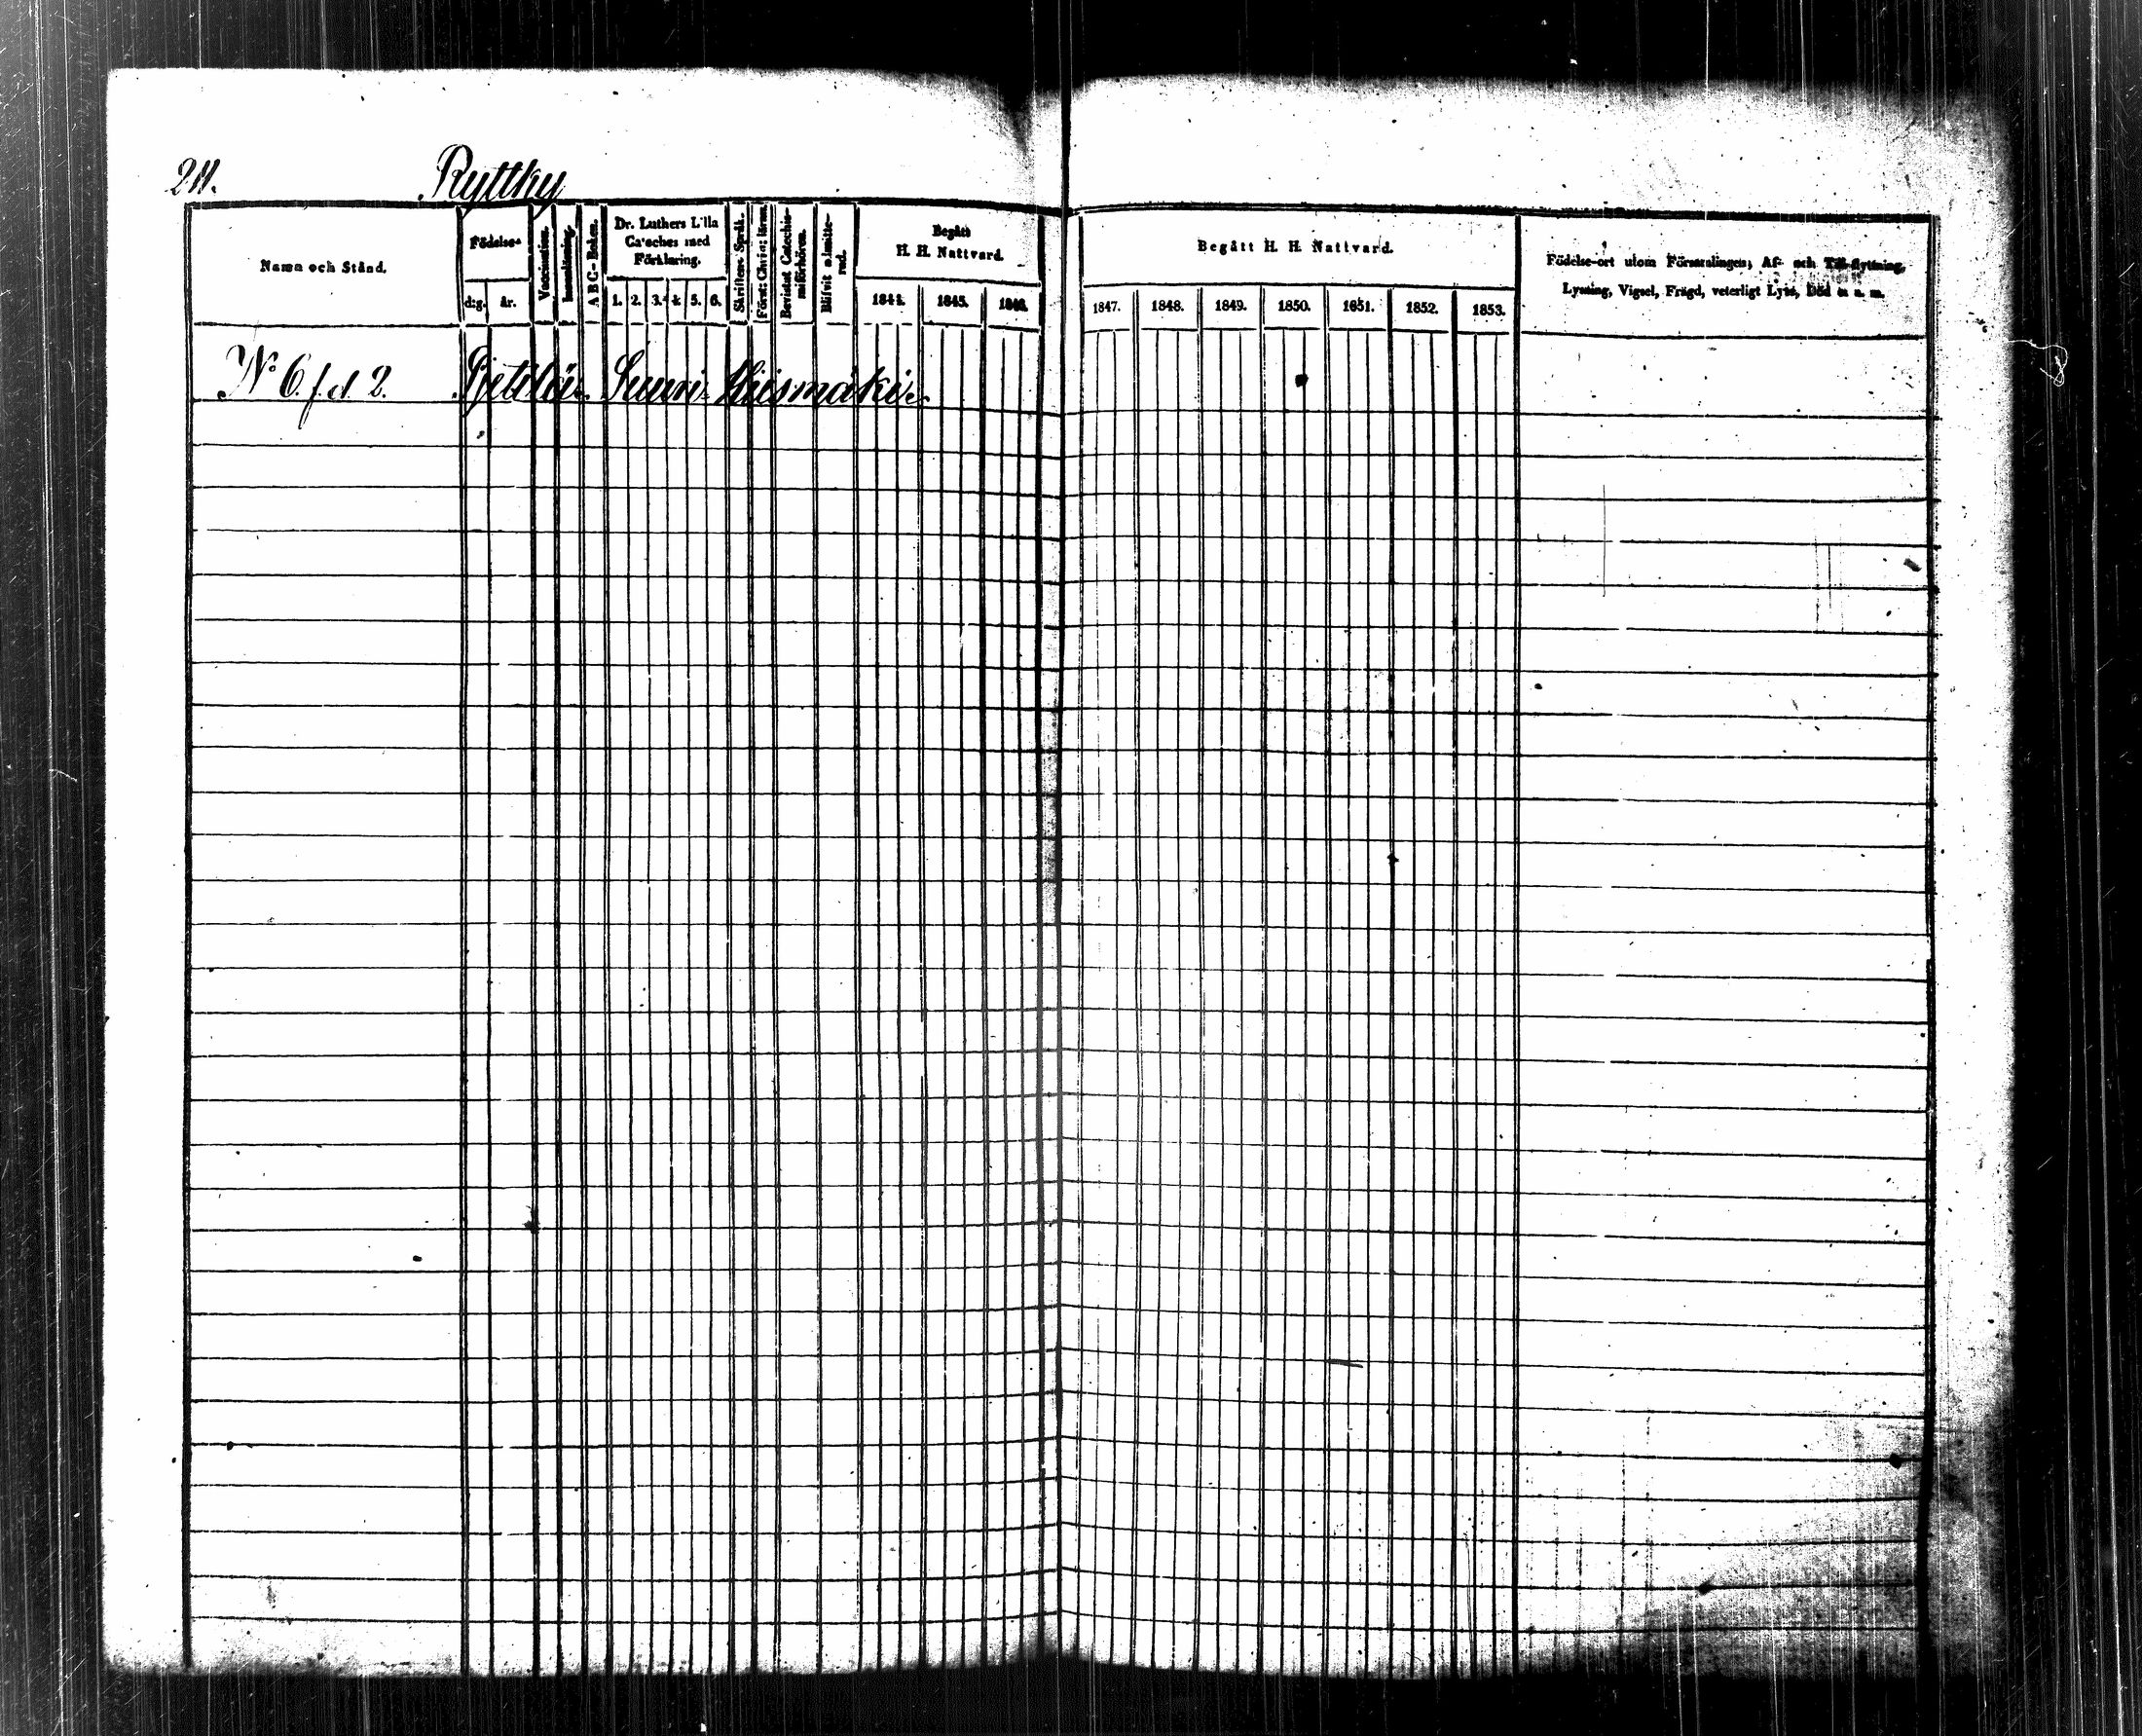 211.
Ryttky
Namn och Stånd.
Födelse-
dag.
år.
Vaccination.
Innanläsning.
ABC-Boken.
Dr. Luthers Lilla
Catches med
Förklaring.
1. 2. 3. 4. 5. 6.
Skriftens Språk.
Bevistat Catechis-
miförhören.
Blifvit admitte-
rad.
Begått
H. H. Nattvard.
1844. 1845. 1846.
Begått H. H. Nattvard.
1847. 1848. 1849. 1850. 1851. 1852. 1853.
Födelse-ort utom Församlingen, Af- och Till-flyttning,
Lysning, Vigsel, Frägd, veterligt Lyte, Död m. m.
No 6. f. d. 2. Pjettilä. Suuri-Hiismäki.